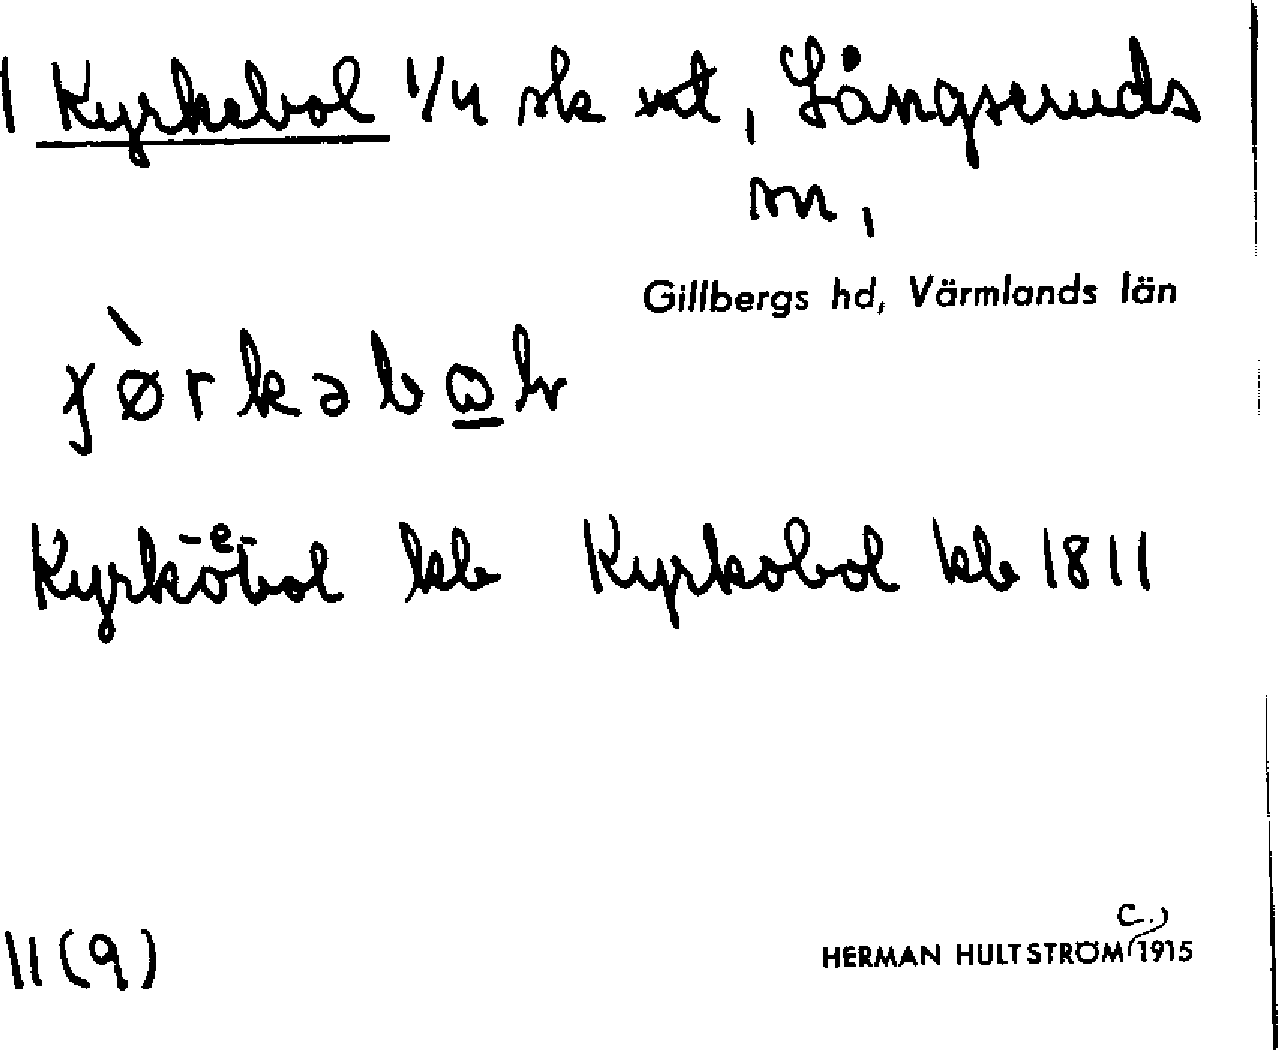 1 Kyrkebol 1/4 sk skt, Långseruds
sn,
Gillbergs hd, Värmlands län
Kyrköbol -e- kb Kyrkobol kb 1811
11(9)
HERMAN HULTSTRÖM c.) 1915